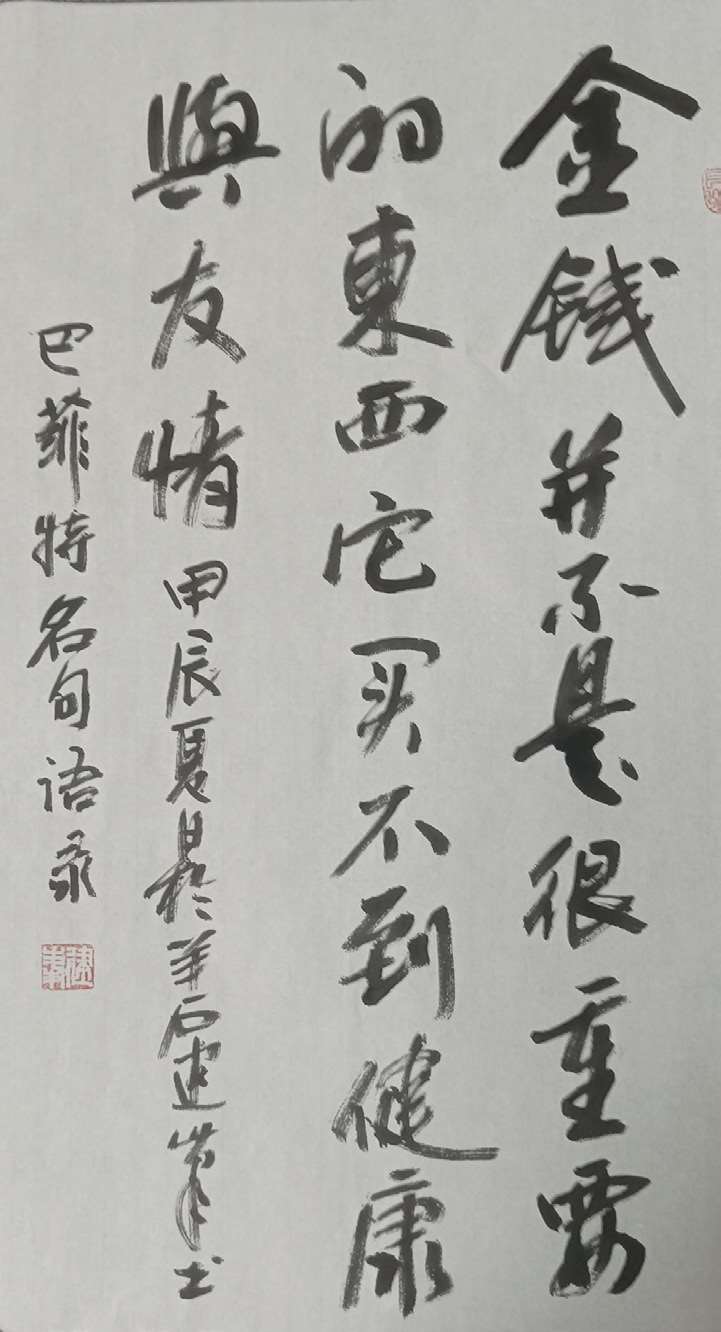 金錢并不是很重要
的東西它买不到健康
與友情 甲辰夏於羊石建峯书
巴菲特名句语录